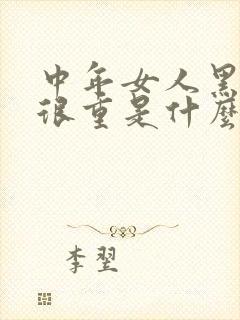 中年女人黑
很重是什麼
李翌